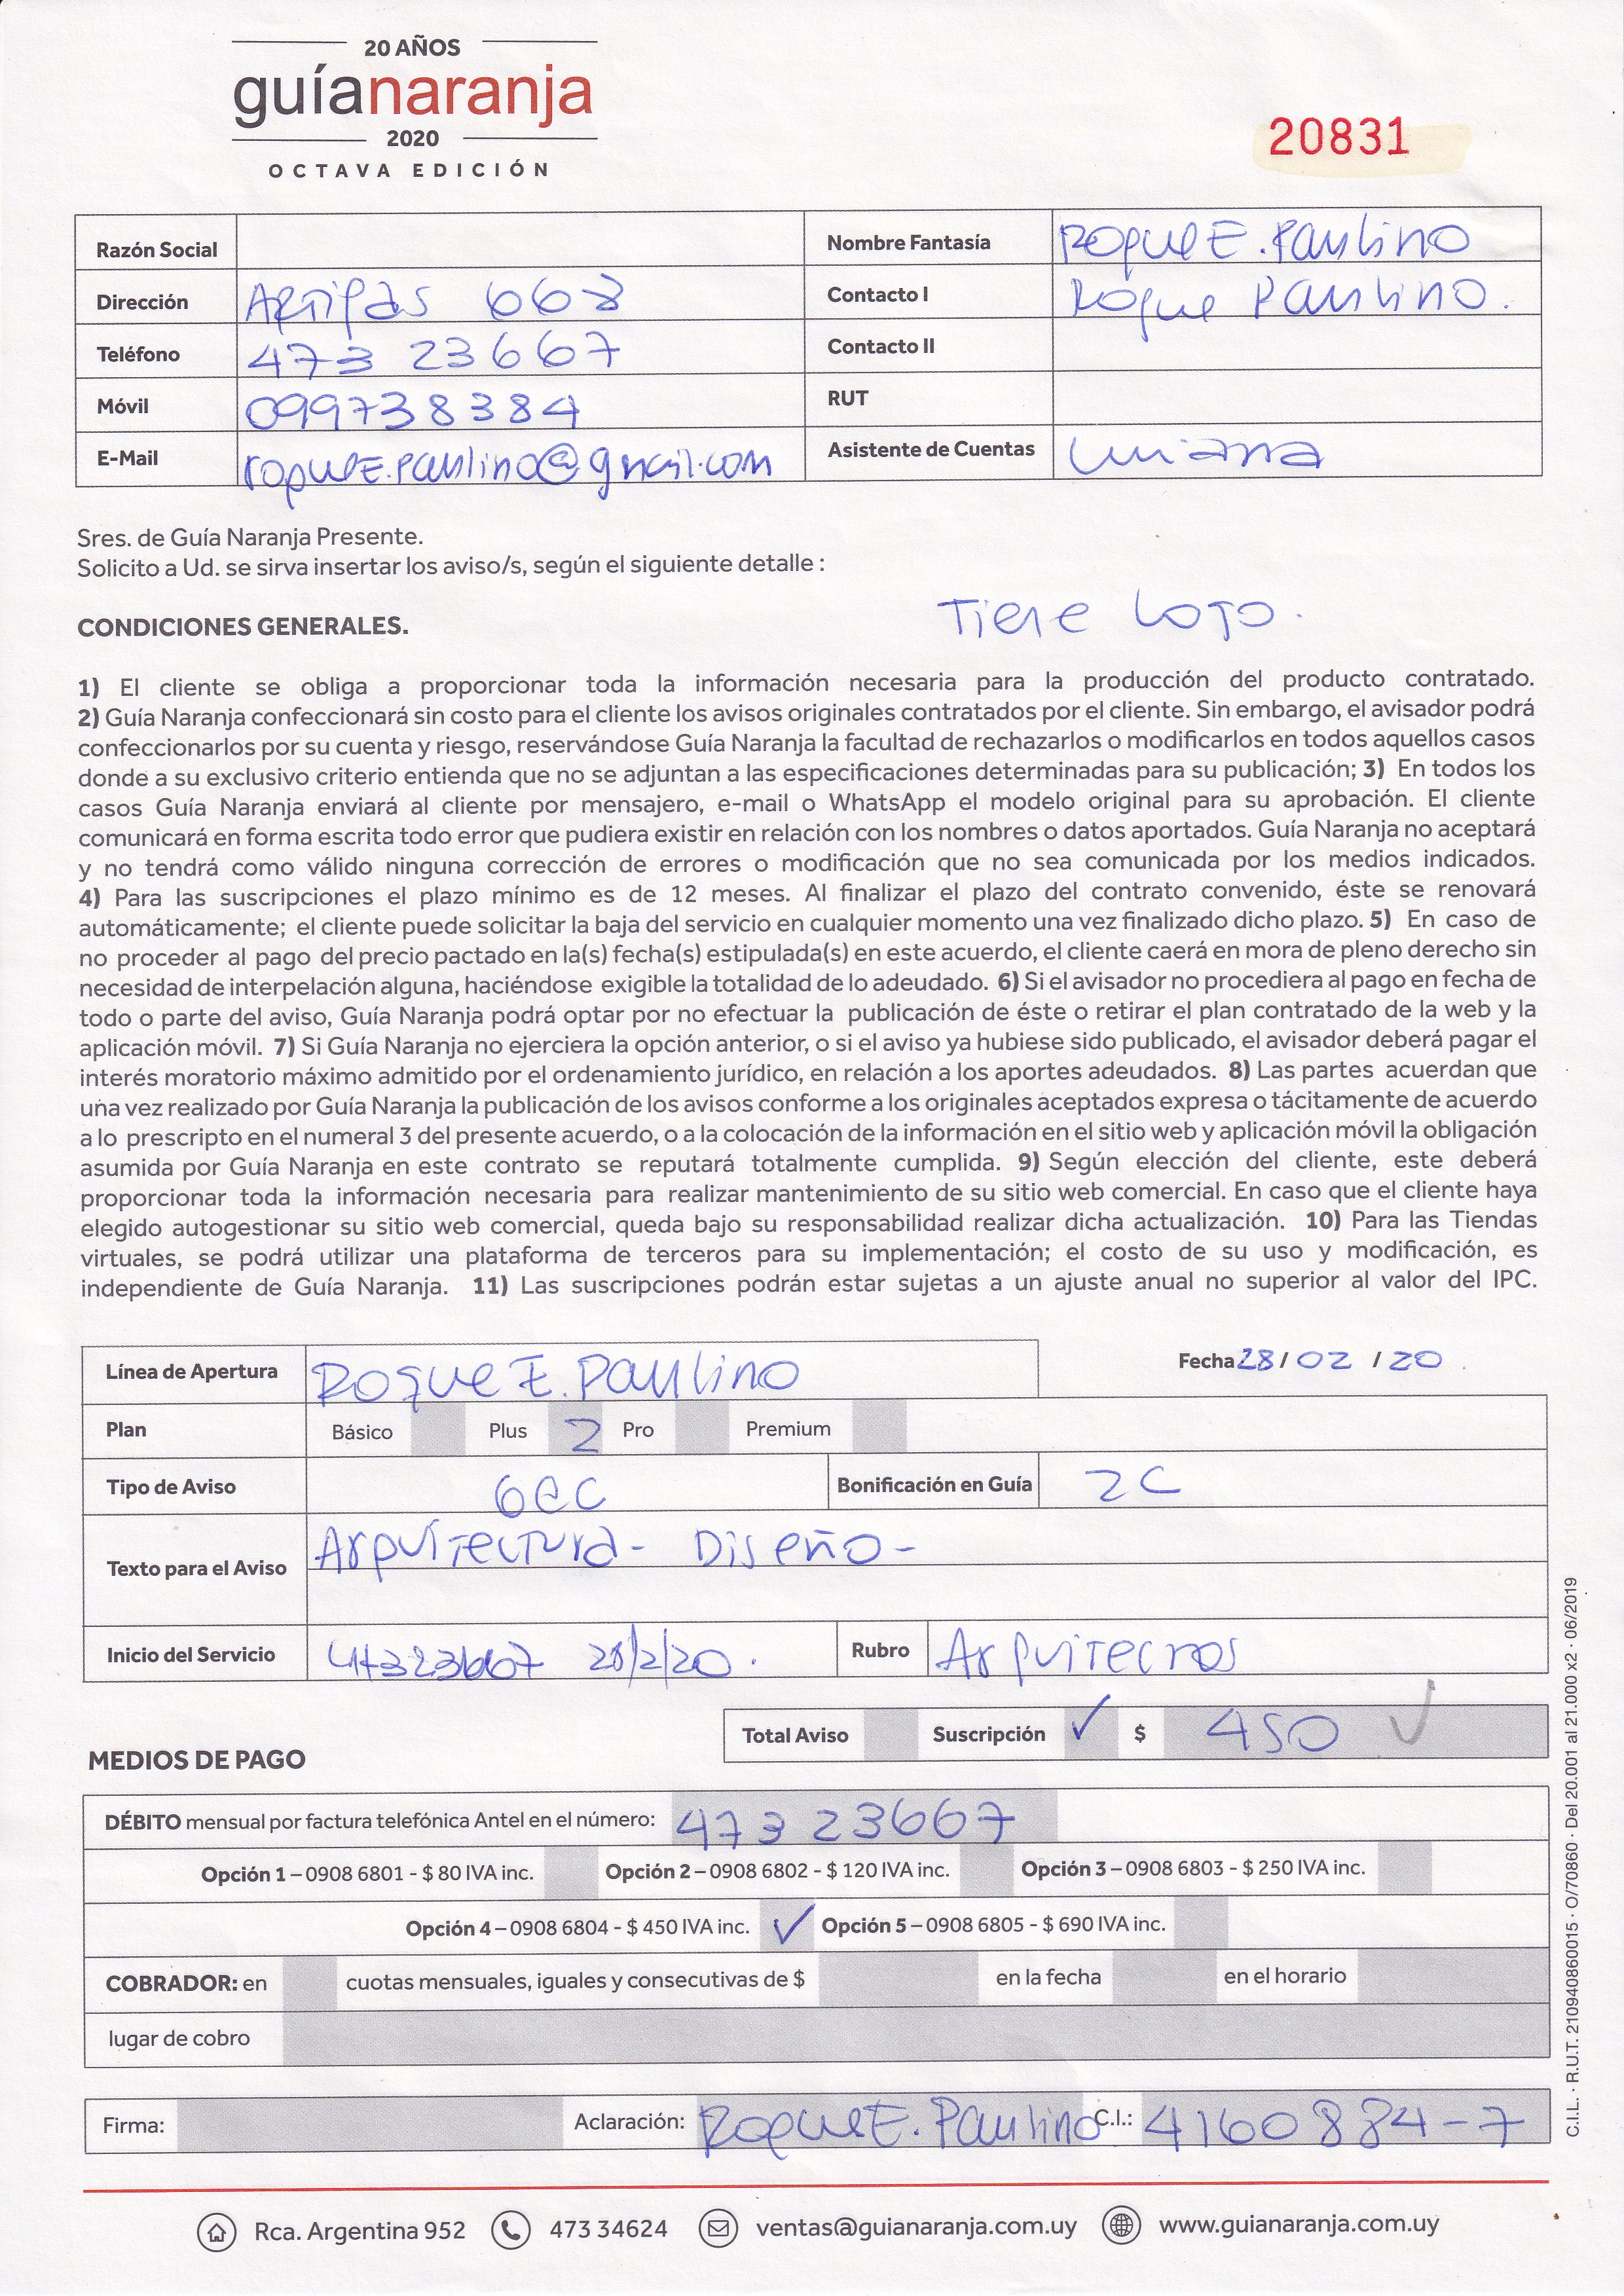 20 AÑOS
guíanaranja
2020
OCTAVA EDICIÓN
20831
Razón Social
Nombre Fantasía RoqueE.Paulino
Dirección Artigas 668
Contacto I Roque Paulino.
Teléfono 473 23667
Contacto II
Móvil 099738384
RUT
E-Mail roqueE.Paulino@gmail.com
Asistente de Cuentas
Sres. de Guía Naranja Presente.
Solicito a Ud. se sirva insertar los aviso/s, según el siguiente detalle :
Tiene Logo.
CONDICIONES GENERALES.
1) El cliente se obliga a proporcionar toda la información necesaria para la producción del producto contratado.
2) Guía Naranja confeccionará sin costo para el cliente los avisos originales contratados por el cliente. Sin embargo, el avisador podrá
confeccionarlos por su cuenta y riesgo, reservándose Guía Naranja la facultad de rechazarlos o modificarlos en todos aquellos casos
donde a su exclusivo criterio entienda que no se adjuntan a las especificaciones determinadas para su publicación; 3) En todos los
casos Guía Naranja enviará al cliente por mensajero, e-mail o WhatsApp el modelo original para su aprobación. El cliente
comunicará en forma escrita todo error que pudiera existir en relación con los nombres o datos aportados. Guía Naranja no aceptará
y no tendrá como válido ninguna corrección de errores o modificación que no sea comunicada por los medios indicados.
4) Para las suscripciones el plazo mínimo es de 12 meses. Al finalizar el plazo del contrato convenido, éste se renovará
automáticamente; el cliente puede solicitar la baja del servicio en cualquier momento una vez finalizado dicho plazo. 5) En caso de
no proceder al pago del precio pactado en la(s) fecha(s) estipulada(s) en este acuerdo, el cliente caerá en mora de pleno derecho sin
necesidad de interpelación alguna, haciéndose exigible la totalidad de lo adeudado. 6) Si el avisador no procediera al pago en fecha de
todo o parte del aviso, Guía Naranja podrá optar por no efectuar la publicación de éste o retirar el plan contratado de la web y la
aplicación móvil. 7) Si Guía Naranja no ejerciera la opción anterior, o si el aviso ya hubiese sido publicado, el avisador deberá pagar el
interés moratorio máximo admitido por el ordenamiento jurídico, en relación a los aportes adeudados. 8) Las partes acuerdan que
una vez realizado por Guía Naranja la publicación de los avisos conforme a los originales aceptados expresa o tácitamente de acuerdo
a lo prescripto en el numeral 3 del presente acuerdo, o a la colocación de la información en el sitio web y aplicación móvil la obligación
asumida por Guía Naranja en este contrato se reputará totalmente cumplida. 9) Según elección del cliente, este deberá
proporcionar toda la información necesaria para realizar mantenimiento de su sitio web comercial. En caso que el cliente haya
elegido autogestionar su sitio web comercial, queda bajo su responsabilidad realizar dicha actualización. 10) Para las Tiendas
virtuales, se podrá utilizar una plataforma de terceros para su implementación; el costo de su uso y modificación, es
independiente de Guía Naranja. 11) Las suscripciones podrán estar sujetas a un ajuste anual no superior al valor del IPC.
Línea de Apertura Roque E. Paulino
Fecha 28 / 02 / 20 .
Plan Básico Plus 2 Pro Premium
Tipo de Aviso 6ec Bonificación en Guía 2C
Texto para el Aviso Arquitectura- Diseño-
Inicio del Servicio 47323667 28/2/20. Rubro Arquitectos
Total Aviso Suscripción ✓ $ 450 ✓
MEDIOS DE PAGO
DÉBITO mensual por factura telefónica Antel en el número: 473 23667
Opción 1 – 0908 6801 - $ 80 IVA inc. Opción 2 – 0908 6802 - $ 120 IVA inc. Opción 3 – 0908 6803 - $ 250 IVA inc.
Opción 4 – 0908 6804 - $ 450 IVA inc. ✓ Opción 5 – 0908 6805 - $ 690 IVA inc.
COBRADOR: en cuotas mensuales, iguales y consecutivas de $ en la fecha en el horario
lugar de cobro
Firma: Aclaración: RoqueE. Paulino C.I.: 4160884-7
C.I.L. · R.U.T. 210940860015 · O/70860 · Del 20.001 al 21.000 x2 · 06/2019
Rca. Argentina 952 473 34624 ventas@guianaranja.com.uy www.guianaranja.com.uy